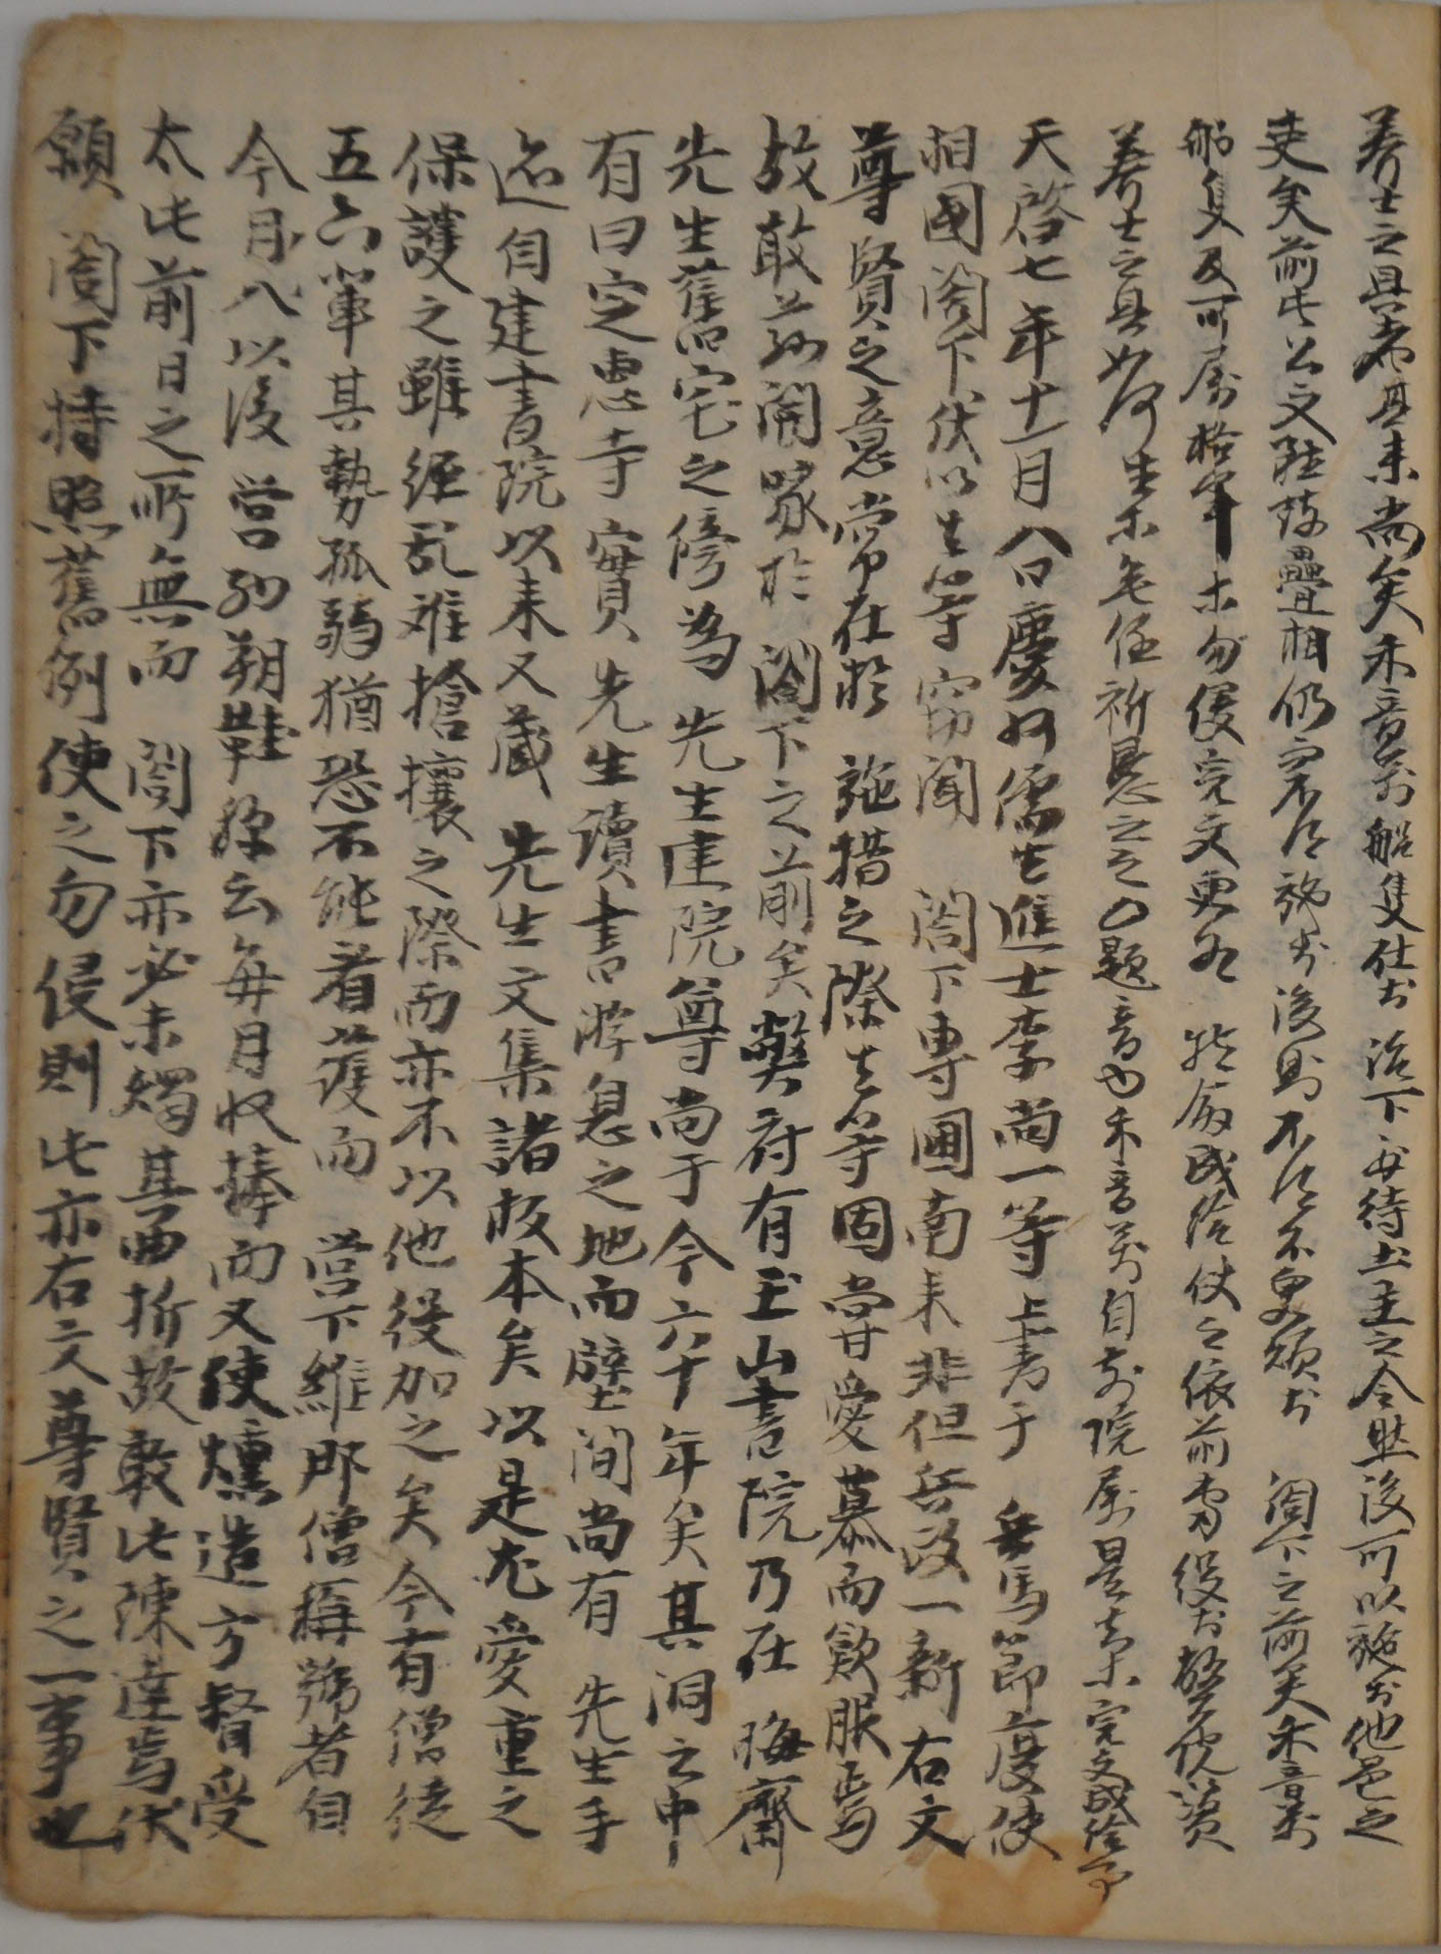 養士之具者其來尚矣禾音前船隻仕於治下安待土主之令然後可以施於他邑之
吏矣前此公文陞致疊相仍而不得施於後則不得不更煩於 閤下之前矣禾音前
船隻及可屬格軍等勿侵完文更如 踏啓成給付之依前專役於警院資
養士之具如何生等無任祈懇之至 題音內禾音前自前院屬是去等完文成給事
天啓七年十一月八日慶州儒生進士李尚一等上書于 兵馬節度使
相國閤下伏以生等竊聞 閤下專閫南來非但兵政一新右文
尊賢之意常在於 施措之際生等固嘗愛慕而欽服焉
故敢茲闇喙於 閤下之前矣弊府有玉山書院乃在 晦齋
先生舊宅之傍爲 先生建院尊尚于今六十年矣其洞之中
有曰定惠寺實 先生讀書游息之地而壁間尚有 先生手
迹自建書院以來又藏 先生文集諸板本矣以是尤愛重之
保護之雖經亂離搶攘之際而亦不以他役加之矣今有僧徒
五六輩其勢孤弱猶恐不能着護而 營下維那僧稱號者自
今月八以後 營納朔鞋稱云每月收捧而又使燻造方督受
太此前日之所無而 閤下亦必未燭其曲折故敢此陳達焉伏
願 閤下特照舊例使之勿侵則此亦右文尊賢之一事也